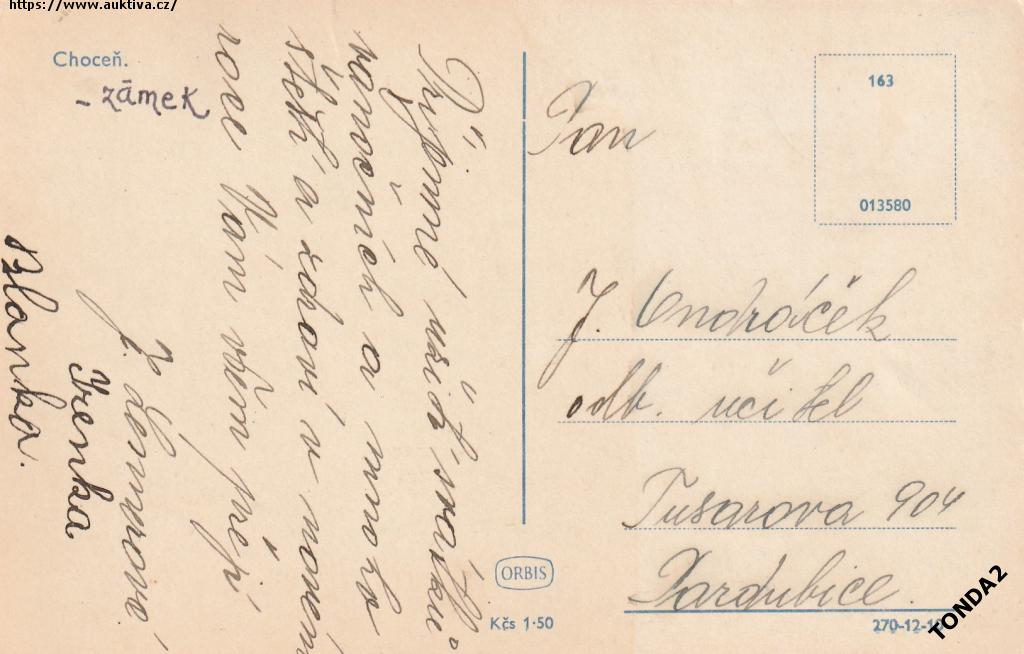 https://www.auktiva.cz/
Choceň.
- zámek
Příjemné užití svátků
vánočních a mnoho
štěstí a zdraví v novém
roce Vám všem přejí
J.
Irenka
Blanka.
Pan
J. Ondráček
odb. učitel
Tusarova 904
Pardubice.
163
013580
ORBIS
Kčs 1·50
270-12-1
TONDA2